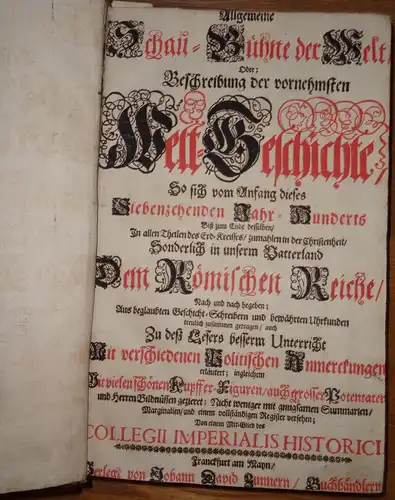 Allgemeine
Schau-Bühne der Welt/
Oder:
Beschreibung der vornehmsten
Welt-Geschichte/
So sich vom Anfang dieses
Siebenzehenden Jahr-Hunderts
Biß zum Ende desselben/
In allen Theilen des Erd-Kreises/ zumahlen in der Christenheit/
Sonderlich in unserm Vatterland
Dem Römischen Reiche/
Nach und nach begeben;
Aus beglaubten Geschicht-Schreibern und bewährten Uhrkunden
treulich zusammen getragen/ auch
Zu deß Lesers besserm Unterricht
Mit verschiedenen Politischen Anmerckungen
erläutert; ingleichem
Mit vielen schönen Kupffer-Figuren/ auch grosser Potentaten
und Herren Bildnüssen gezieret: Nicht weniger mit gnugsamen Summarien/
Marginalien/ und einem vollständigen Register versehen;
Von einem Mit-Glied des
COLLEGII IMPERIALIS HISTORICI
Franckfurt am Mayn/
Verlegt von Johann David Zunnern/ Buchhändlern